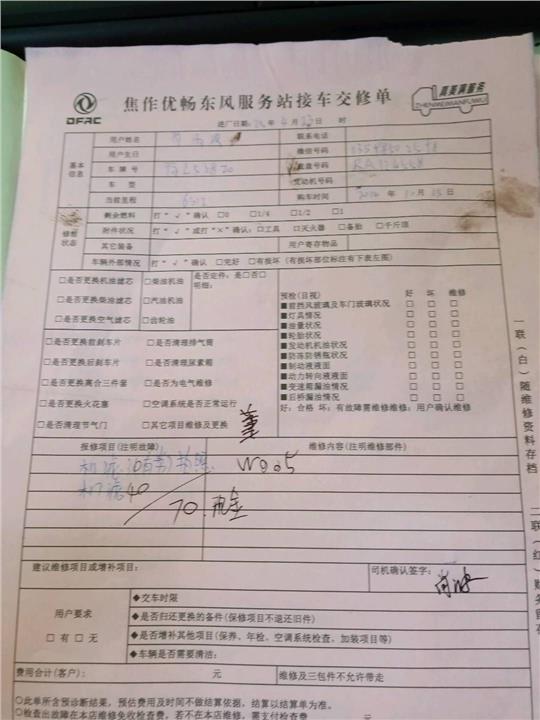 DFAC
焦作优畅东风服务站接车交修单
真美满服务
ZHENMEIMANFUWU
进厂日期: 年 4 月 日 时
基本信息
用户姓名
联系电话
用户生日
微信号码
车牌号
底盘号码
车型
发动机号码
当前里程
购车时间 年 月 日
修前状态
剩余燃料 打“√”确认 □0 □1/4 □1/2 □1
附件状况 打“√”或打“×”确认:□工具 □灭火器 □备胎 □千斤顶
其它装备
用户寄存物品
车辆外部情况 打“√”确认 □完好 □有损坏(有损坏部位标注有下表左图)
□是否更换机油滤芯 □柴油机油 是否定件:是□否□
□是否更换柴油滤芯 □汽油机油 明细:
□是否更换空气滤芯 □齿轮油
□是否更换前刹车片 □是否清理排气筒
□是否更换后刹车片 □是否清理尿素箱
□是否更换离合三件套 □是否为电气维修
□是否更换火花塞 □空调系统是否正常运行
□是否清理节气门 □其它项目维修及更换
预检(目视) 好 坏 维修
■前挡风玻璃及车门玻璃状况 □ □ □
■灯具情况 □ □ □
■油量状况 □ □ □
■轮胎状况 □ □ □
■发动机机油状况 □ □ □
■防冻防锈瓶状况 □ □ □
■制动液液面 □ □ □
■动力转向液液面 □ □ □
■变速箱漏油情况 □ □ □
■后桥漏油情况 □ □ □
好:合格 坏:有故障需维修维修:用户确认维修
报修项目(注明故障): 维修内容(注明维修部件)
机滤 40
70.现金
建议维修项目或增补项目:
司机确认签字:
用户要求
□有□无
◆交车时限
◆是否归还更换的备件(保修项目不退还旧件)
◆是否增补其他项目(保养、年检、空调系统检查、加装项目等)
◆车辆是否需要清洁:
费用合计(客户): 元 维修及三包件不允许带走
○此单所含预诊断结果,预估费用及时间不做结算依据,结算以结算单为准。
○检查出故障在本店维修免收检查费,若不在本店维修,需支付检查费 元
一联(白)随维修资料存档
二联(红)